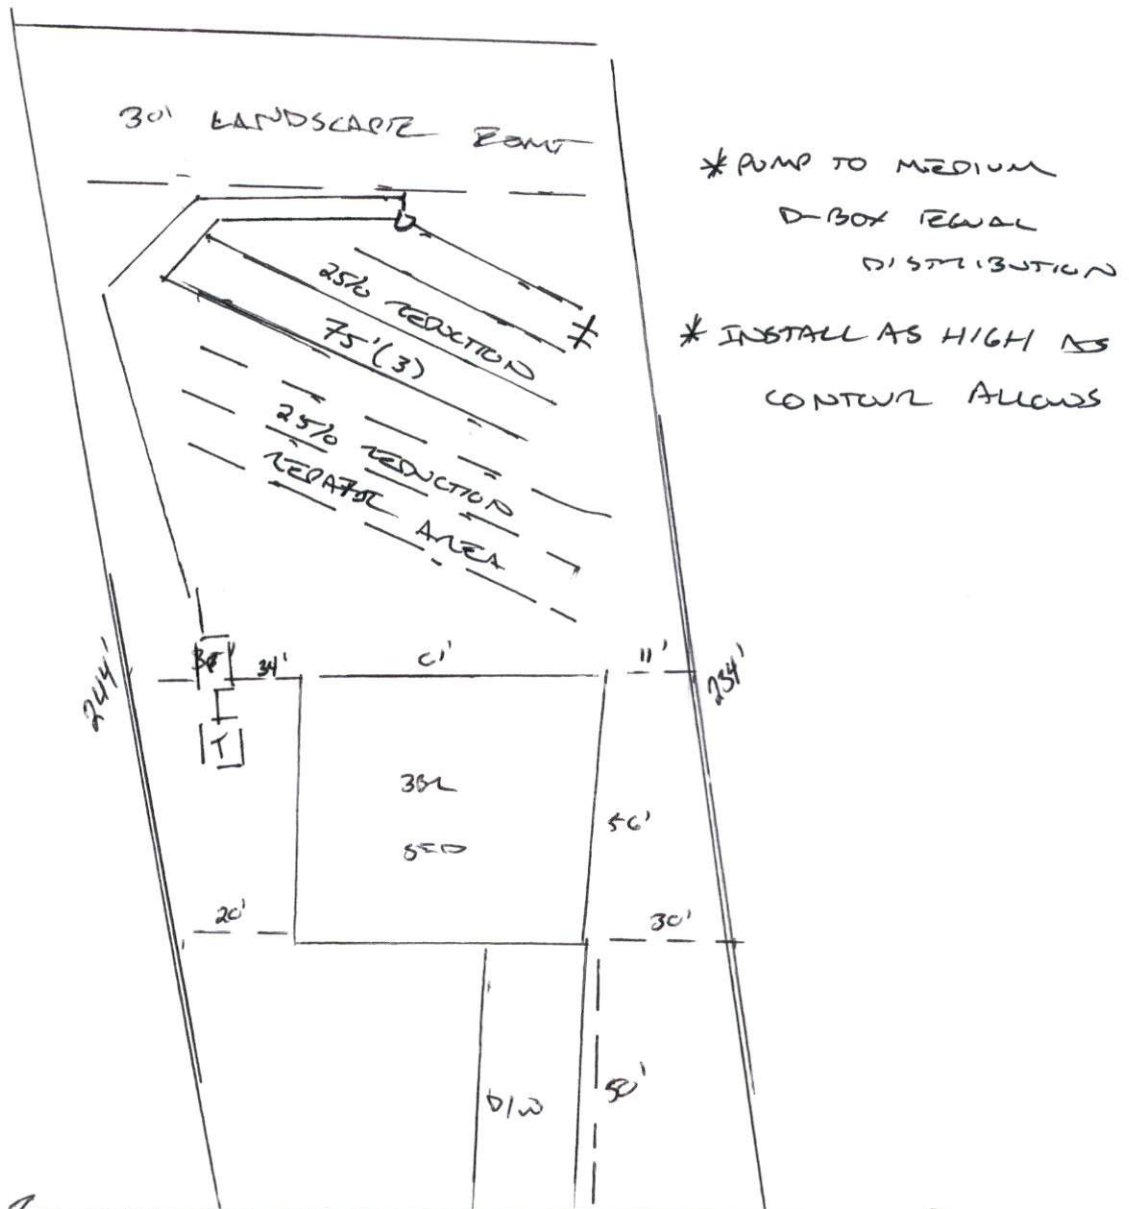 30' LANDSCAPE ESMT
* PUMP TO MEDIUM
D-BOX EQUAL
DISTRIBUTION
* INSTALL AS HIGH AS
CONTOUR ALLOWS
25% REDUCTION
75' (3)
25% REDUCTION
REPAIR AREA
244'
34'
11'
234'
T
3BR
SFD
20'
30'
D/W
50'